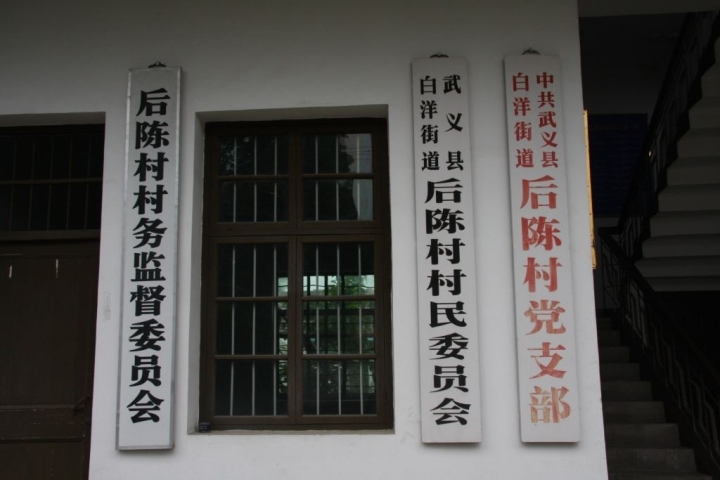 后陈村村务监督委员会
武义县
白洋街道
后陈村村民委员会
中共武义县
白洋街道
后陈村党支部